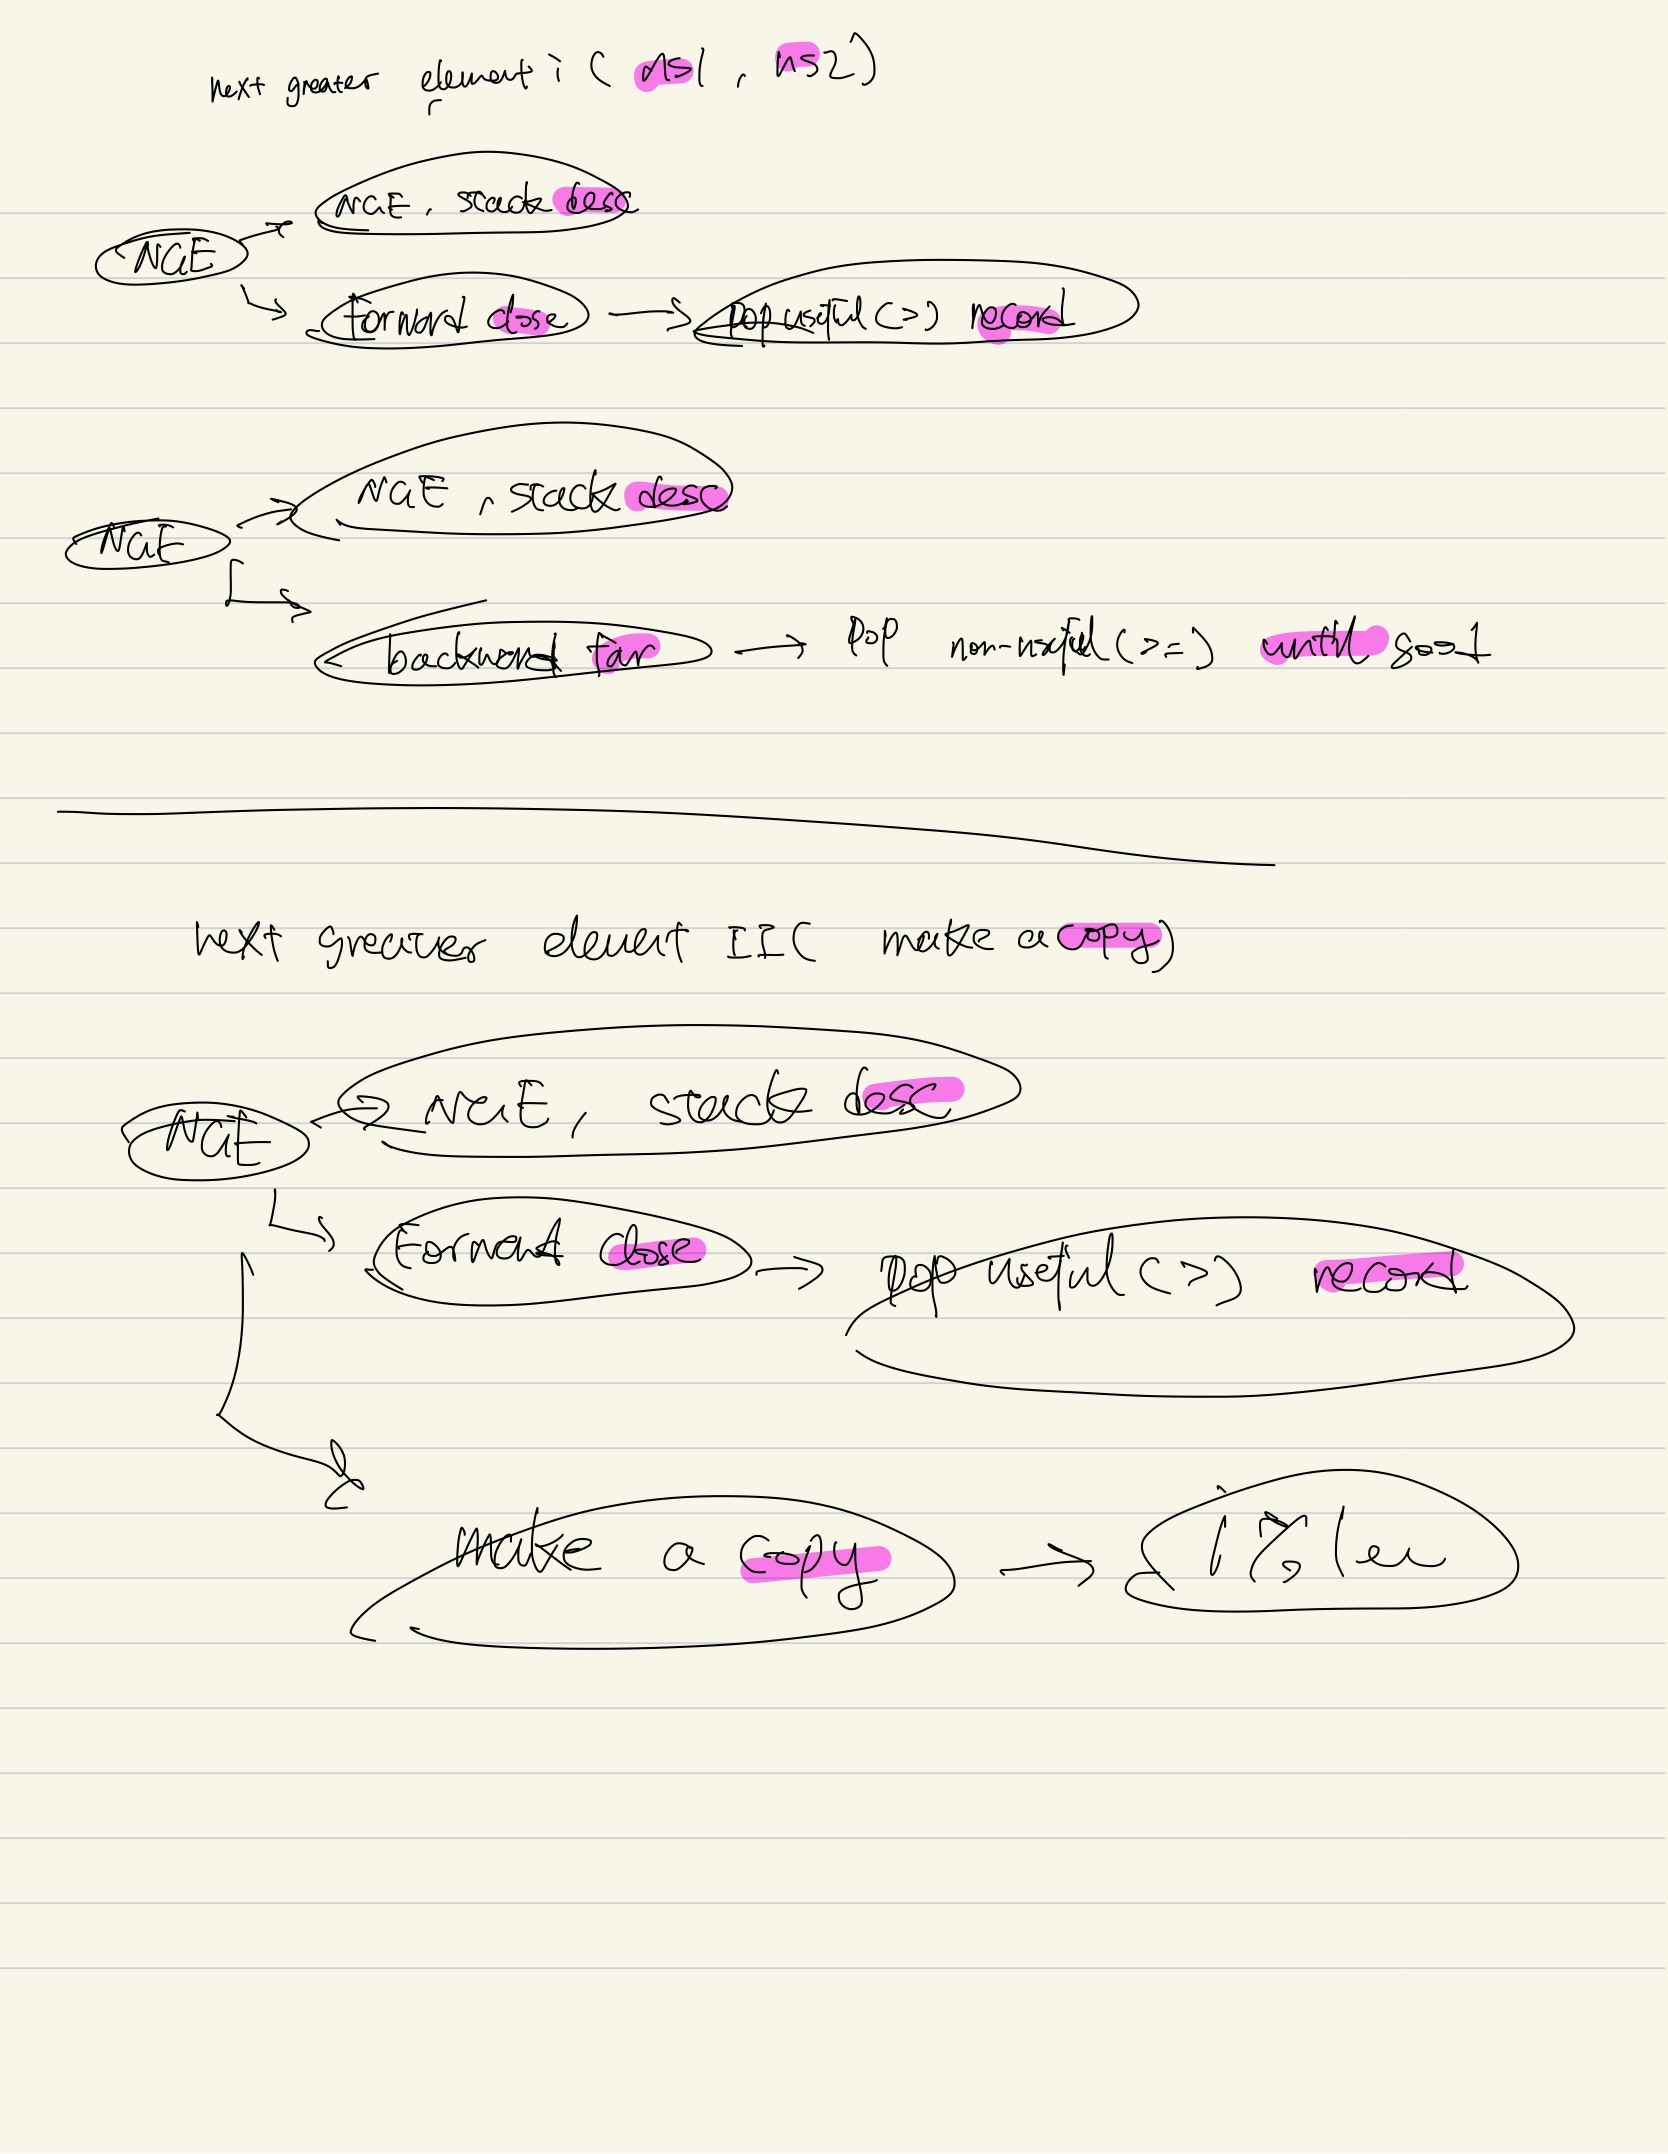 next greater element i ( ns1 , ns2 )
NGE → NGE, stack desc
forward close → pop useful (>) record
NGE → NGE, stack desc
backward far → pop non-useful (>=) until good
next greater element II ( make a copy)
NGE → NGE, stack desc
forward close → pop useful (>) record
make a copy → i % len